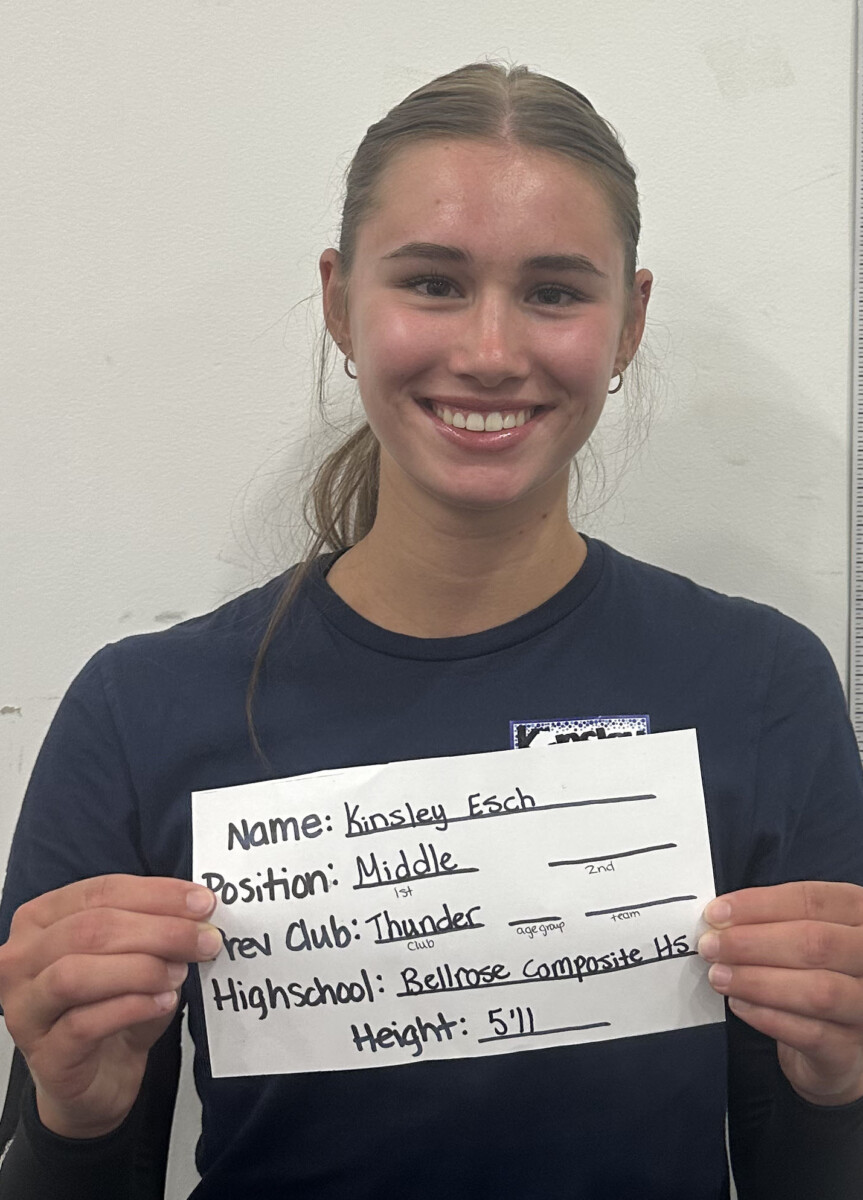 Kinsley
Name: Kinsley Esch
Position: Middle
1st 2nd
Prev Club: Thunder
Club age group team
Highschool: Bellrose Composite HS
Height: 5'11